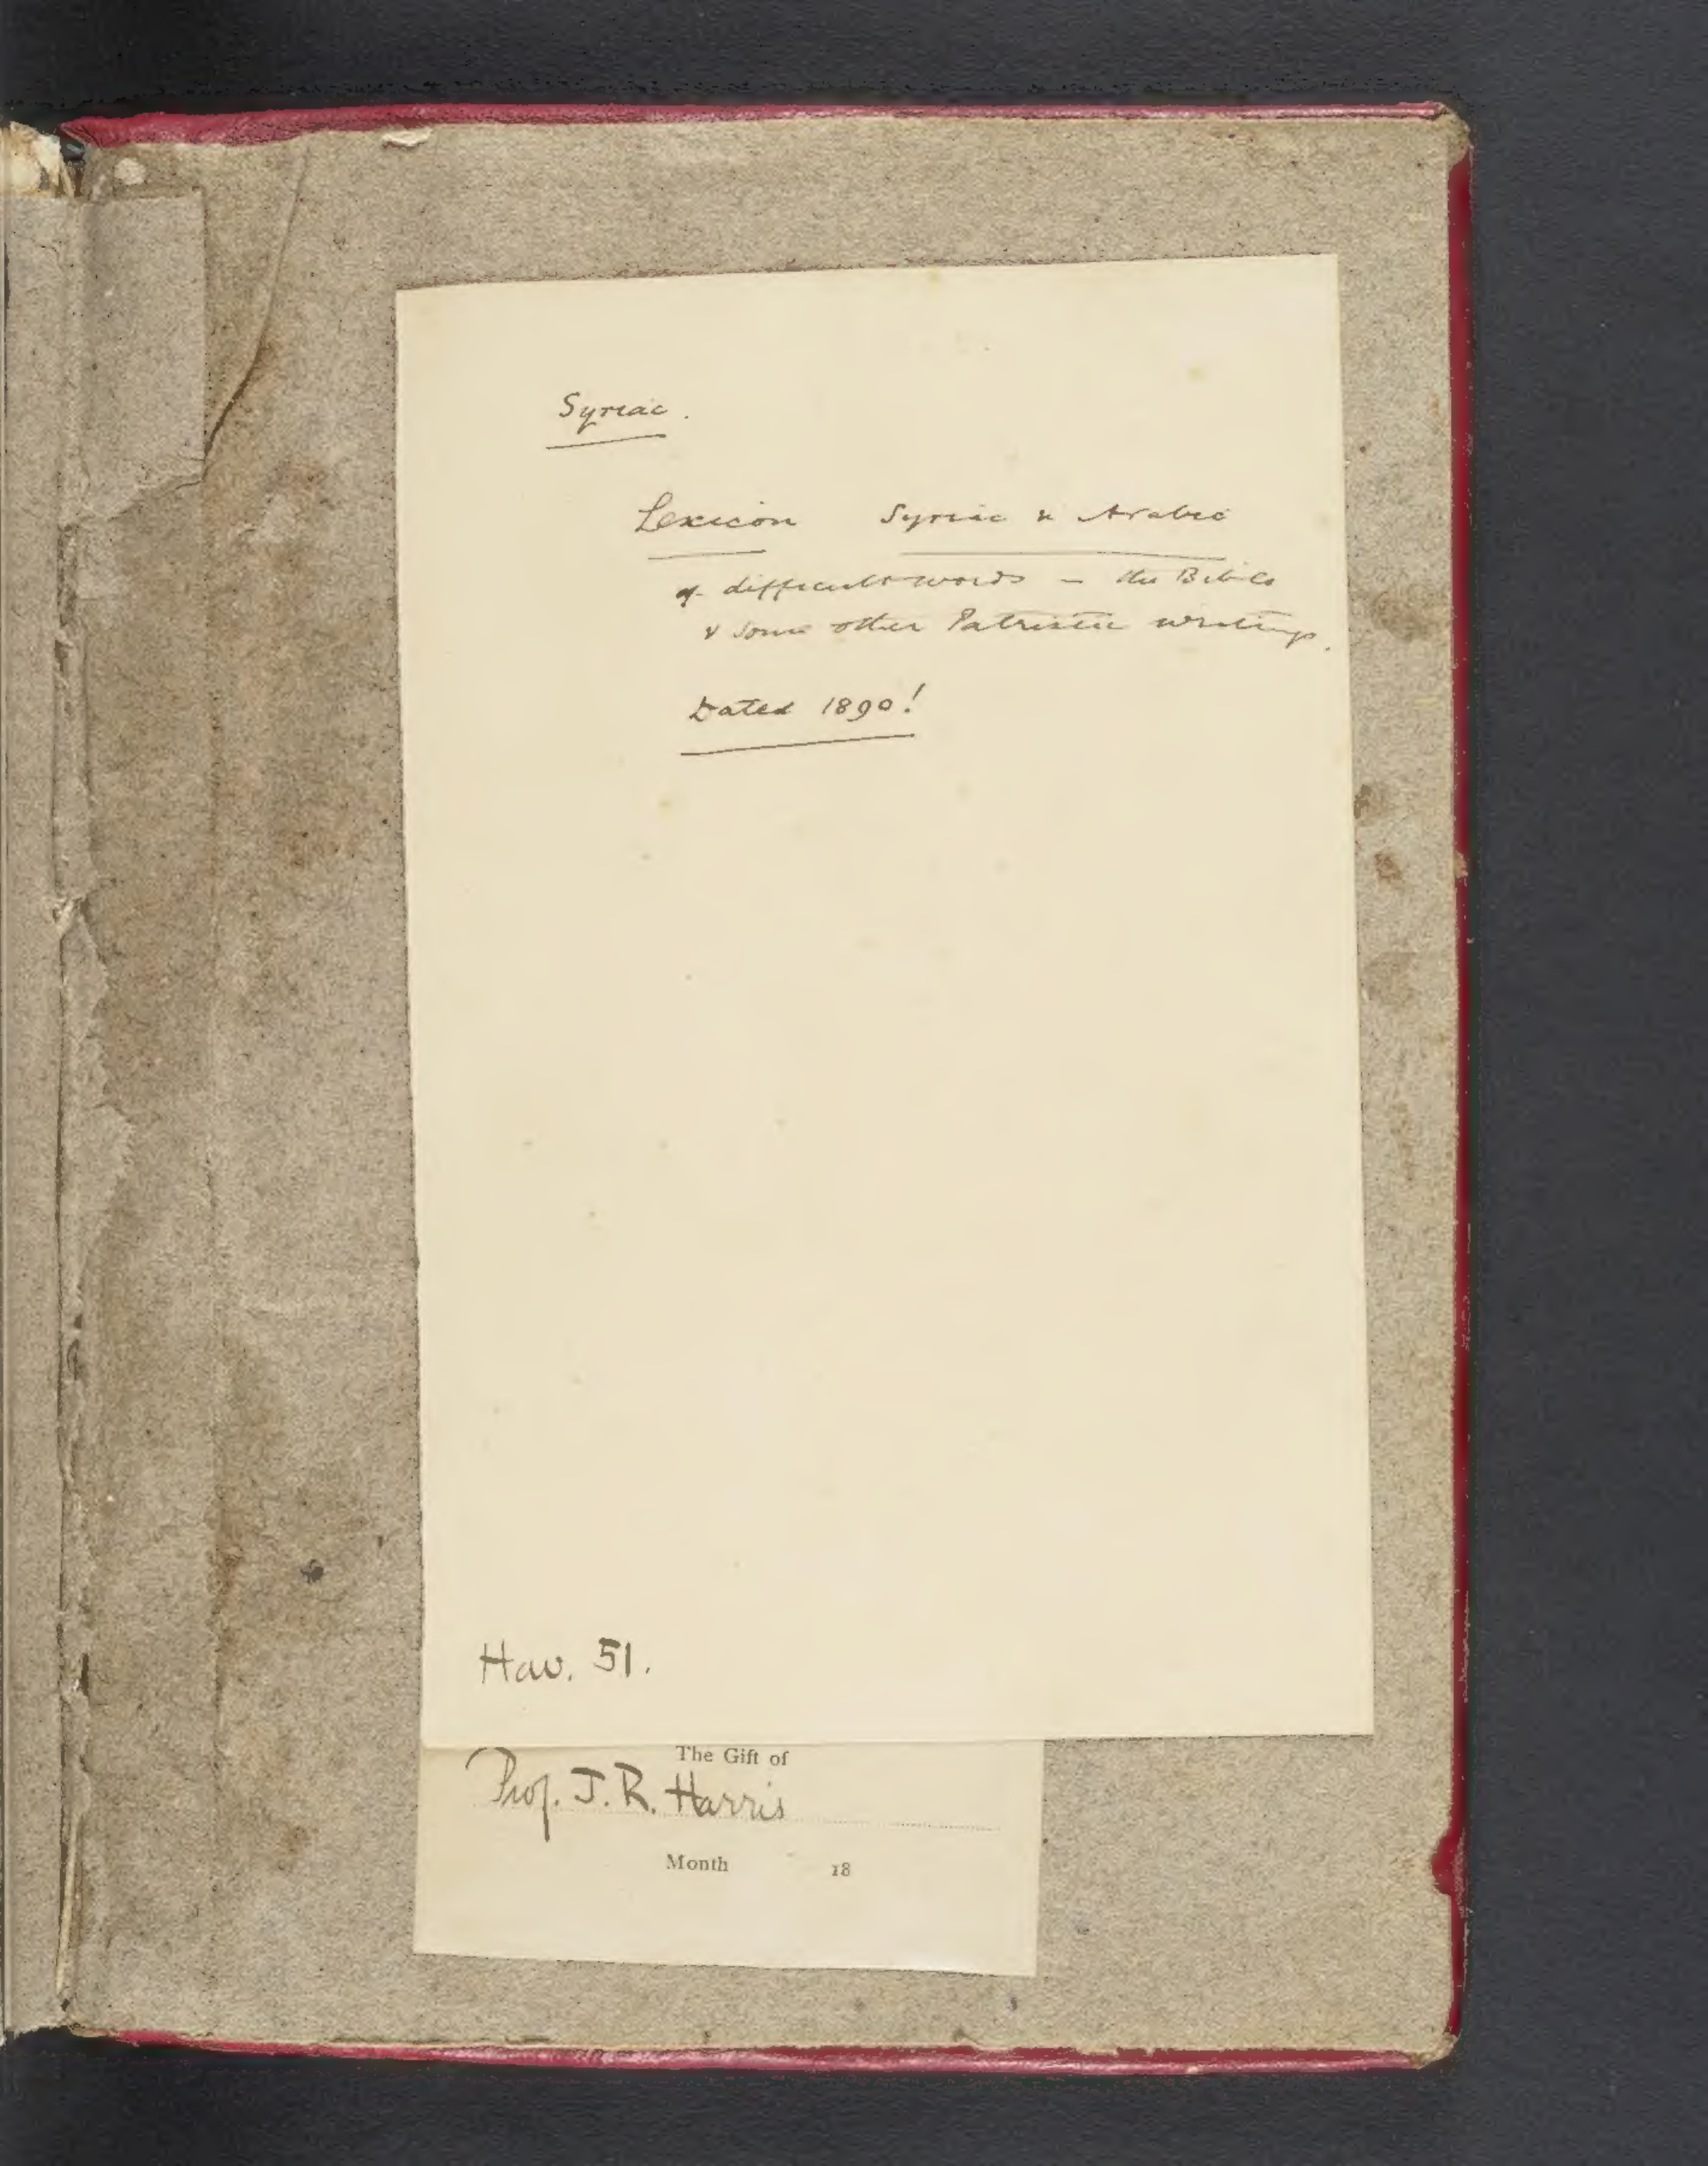 Syriac.
Lexicon Syriac & Arabic
of difficult words in the Bible
& some other Patristic writings.
Dated 1890!
Hav. 51.
The Gift of
Prof. J. R. Harris
Month 18